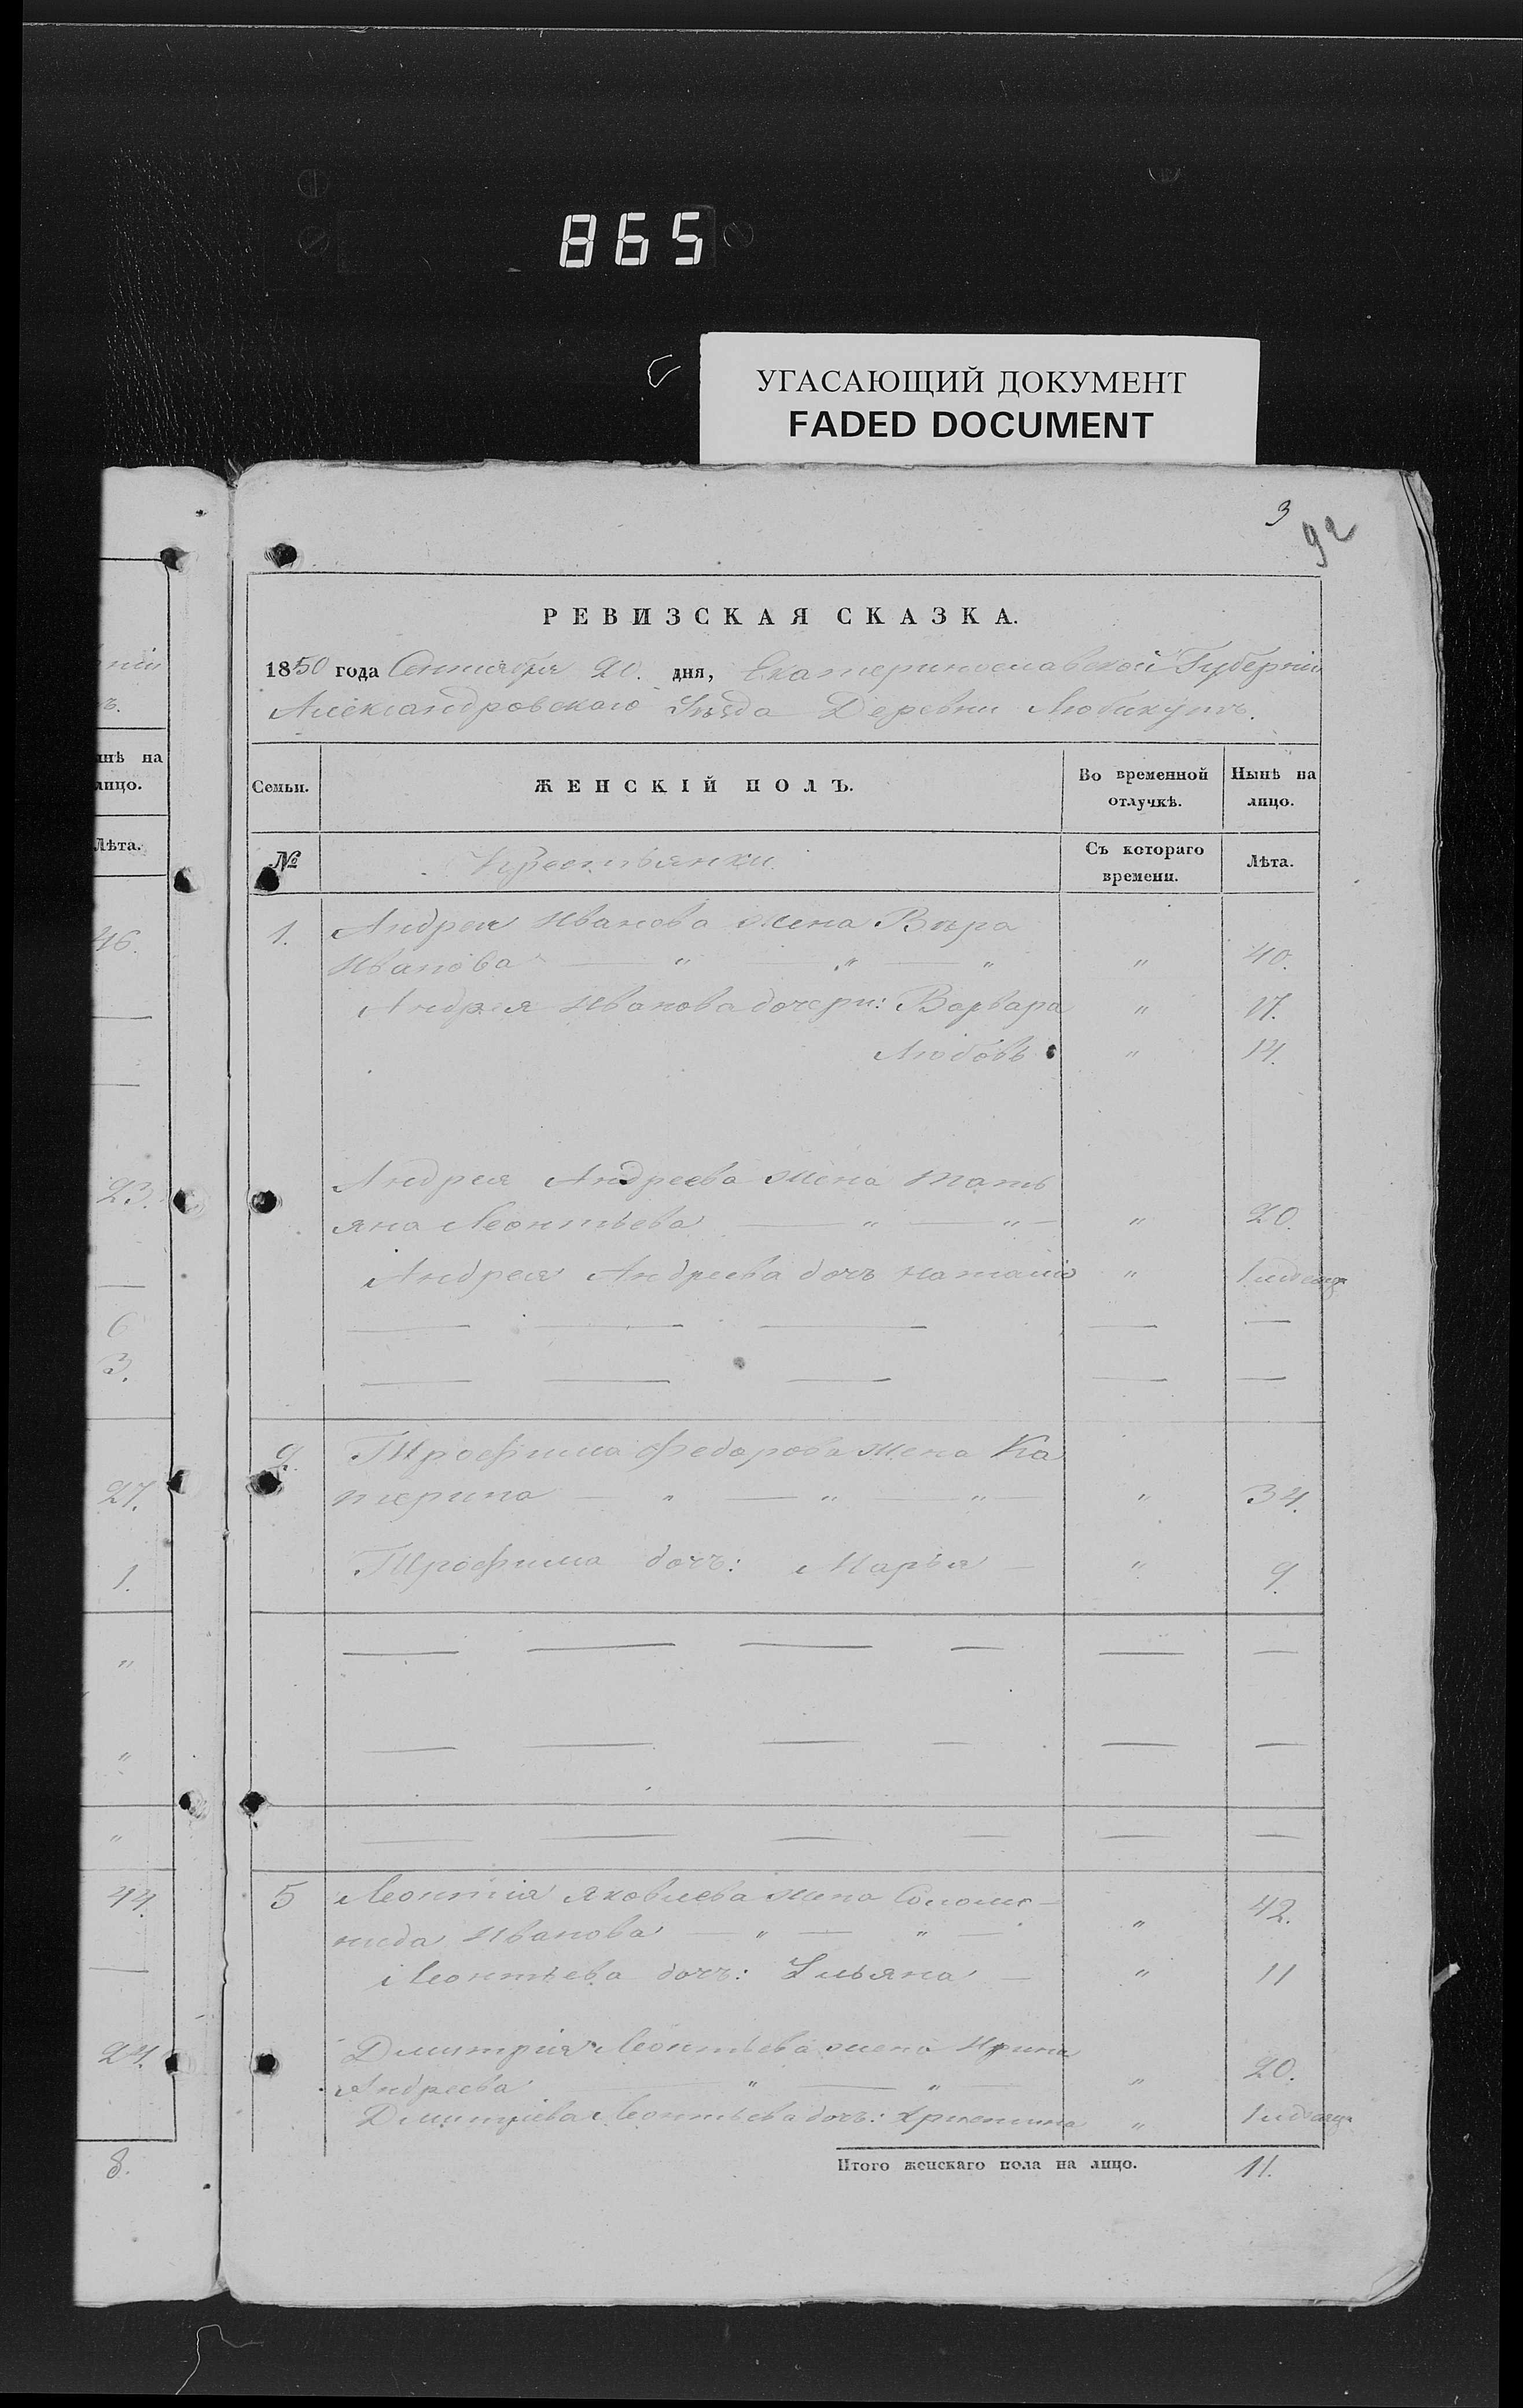 865
УГАСАЮЩИЙ ДОКУМЕНТ
FADED DOCUMENT
3
92
РЕВИЗСКАЯ СКАЗКА.
1850 года Сентября 20. дня, Екатеринославской Губерніи
Александровскаго Уѣзда Деревни Любикутъ.
Семьи.
ЖЕНСКІЙ ПОЛЪ.
Во временной
отлучкѣ.
Нынѣ на
лицо.
№
Крестьянки
Съ котораго
времени.
Лѣта.
1. Андрея Иванова жена Вѣра
Иванова — " — " — " " 40.
Андрея Иванова дочери: Варвара " 17.
Любовь " 14.
Андрея Андреева жена Тать
яна Леонтьева — " — " — " 20.
Андрея Андреева дочь Наталія " 1 мѣсяц
— — — — —
— — — — —
2. Трофима Федорова жена Ка
терина — " — " — " — " 34.
Трофима дочь: Марья — " 9.
— — — — — —
— — — — — —
— — — — — —
5 Леонтія Яковлева жена Соломе-
нида Иванова — " — " — " 42.
Леонтьева дочь: Ульяна — " 11
Дмитрия Леонтьева жена Ирина
Андреева — " — " — " 20.
Дмитріева Леонтьева дочь: Христина " 1 мѣсяца
Итого женскаго пола на лицо. 11.
ній
ъ.
нѣ на
лицо.
Лѣта.
46.
23.
6
3.
27.
1.
"
"
"
44.
24.
8.